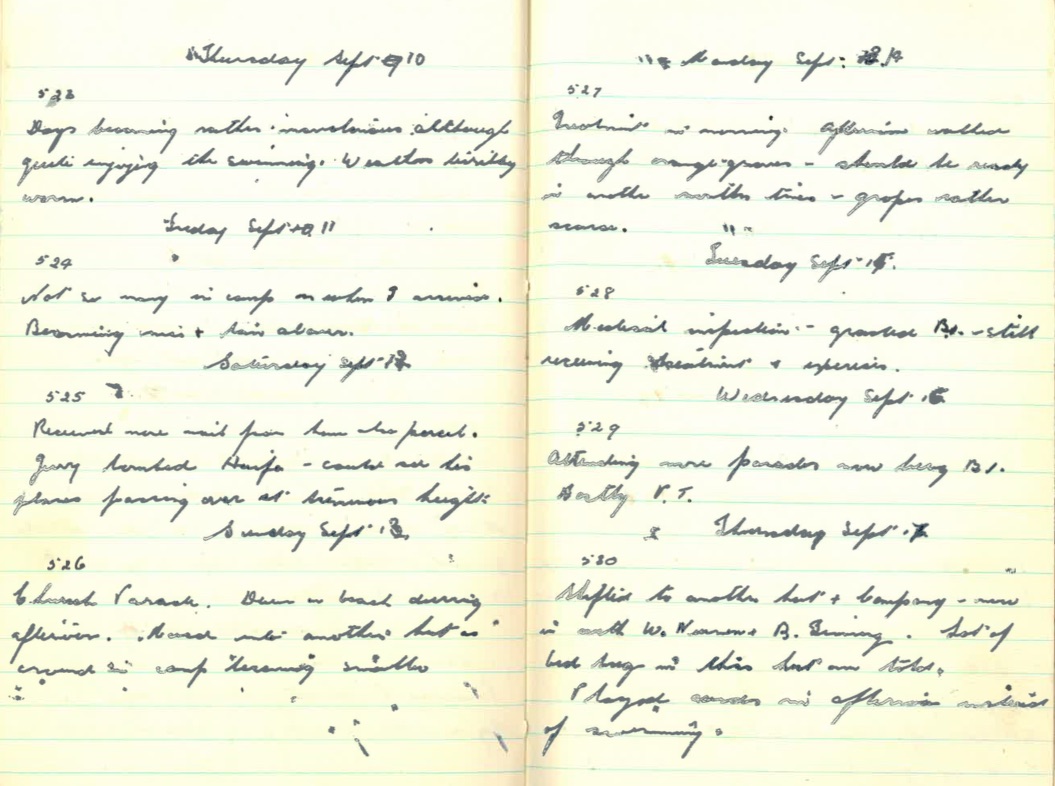 Thursday Sept 10
523
Days becoming rather monotonous although
quite enjoying the swimming. Weather terribly
warm.
Friday Sept 11
524
Not so many in camp as when I arrived.
Becoming nice + tan above.
Saturday Sept 12
525
Received more mail from home also parcel.
Jerry bombed Haifa - could see his
planes passing over at height.
Sunday Sept 13
526
Church Parade. Down on beach during
afternoon. Moved into another hut as
crowd in camp becoming smaller
Monday Sept: 14
527
Treatment in morning. Afternoon walked
through orange-groves - should be ready
in another months time - grapes rather
scarce.
Tuesday Sept 15.
528
Medical inspection - granted B1. - still
receiving treatment + exercises.
Wednesday Sept 16
529
Attending more parades now being B1.
P.T.
Thursday Sept 17
530
Shifted to another hut + Company - now
in with W. + B. Lot of
bed bugs in this hut am told.
Played cards in afternoon instead
of swimming.